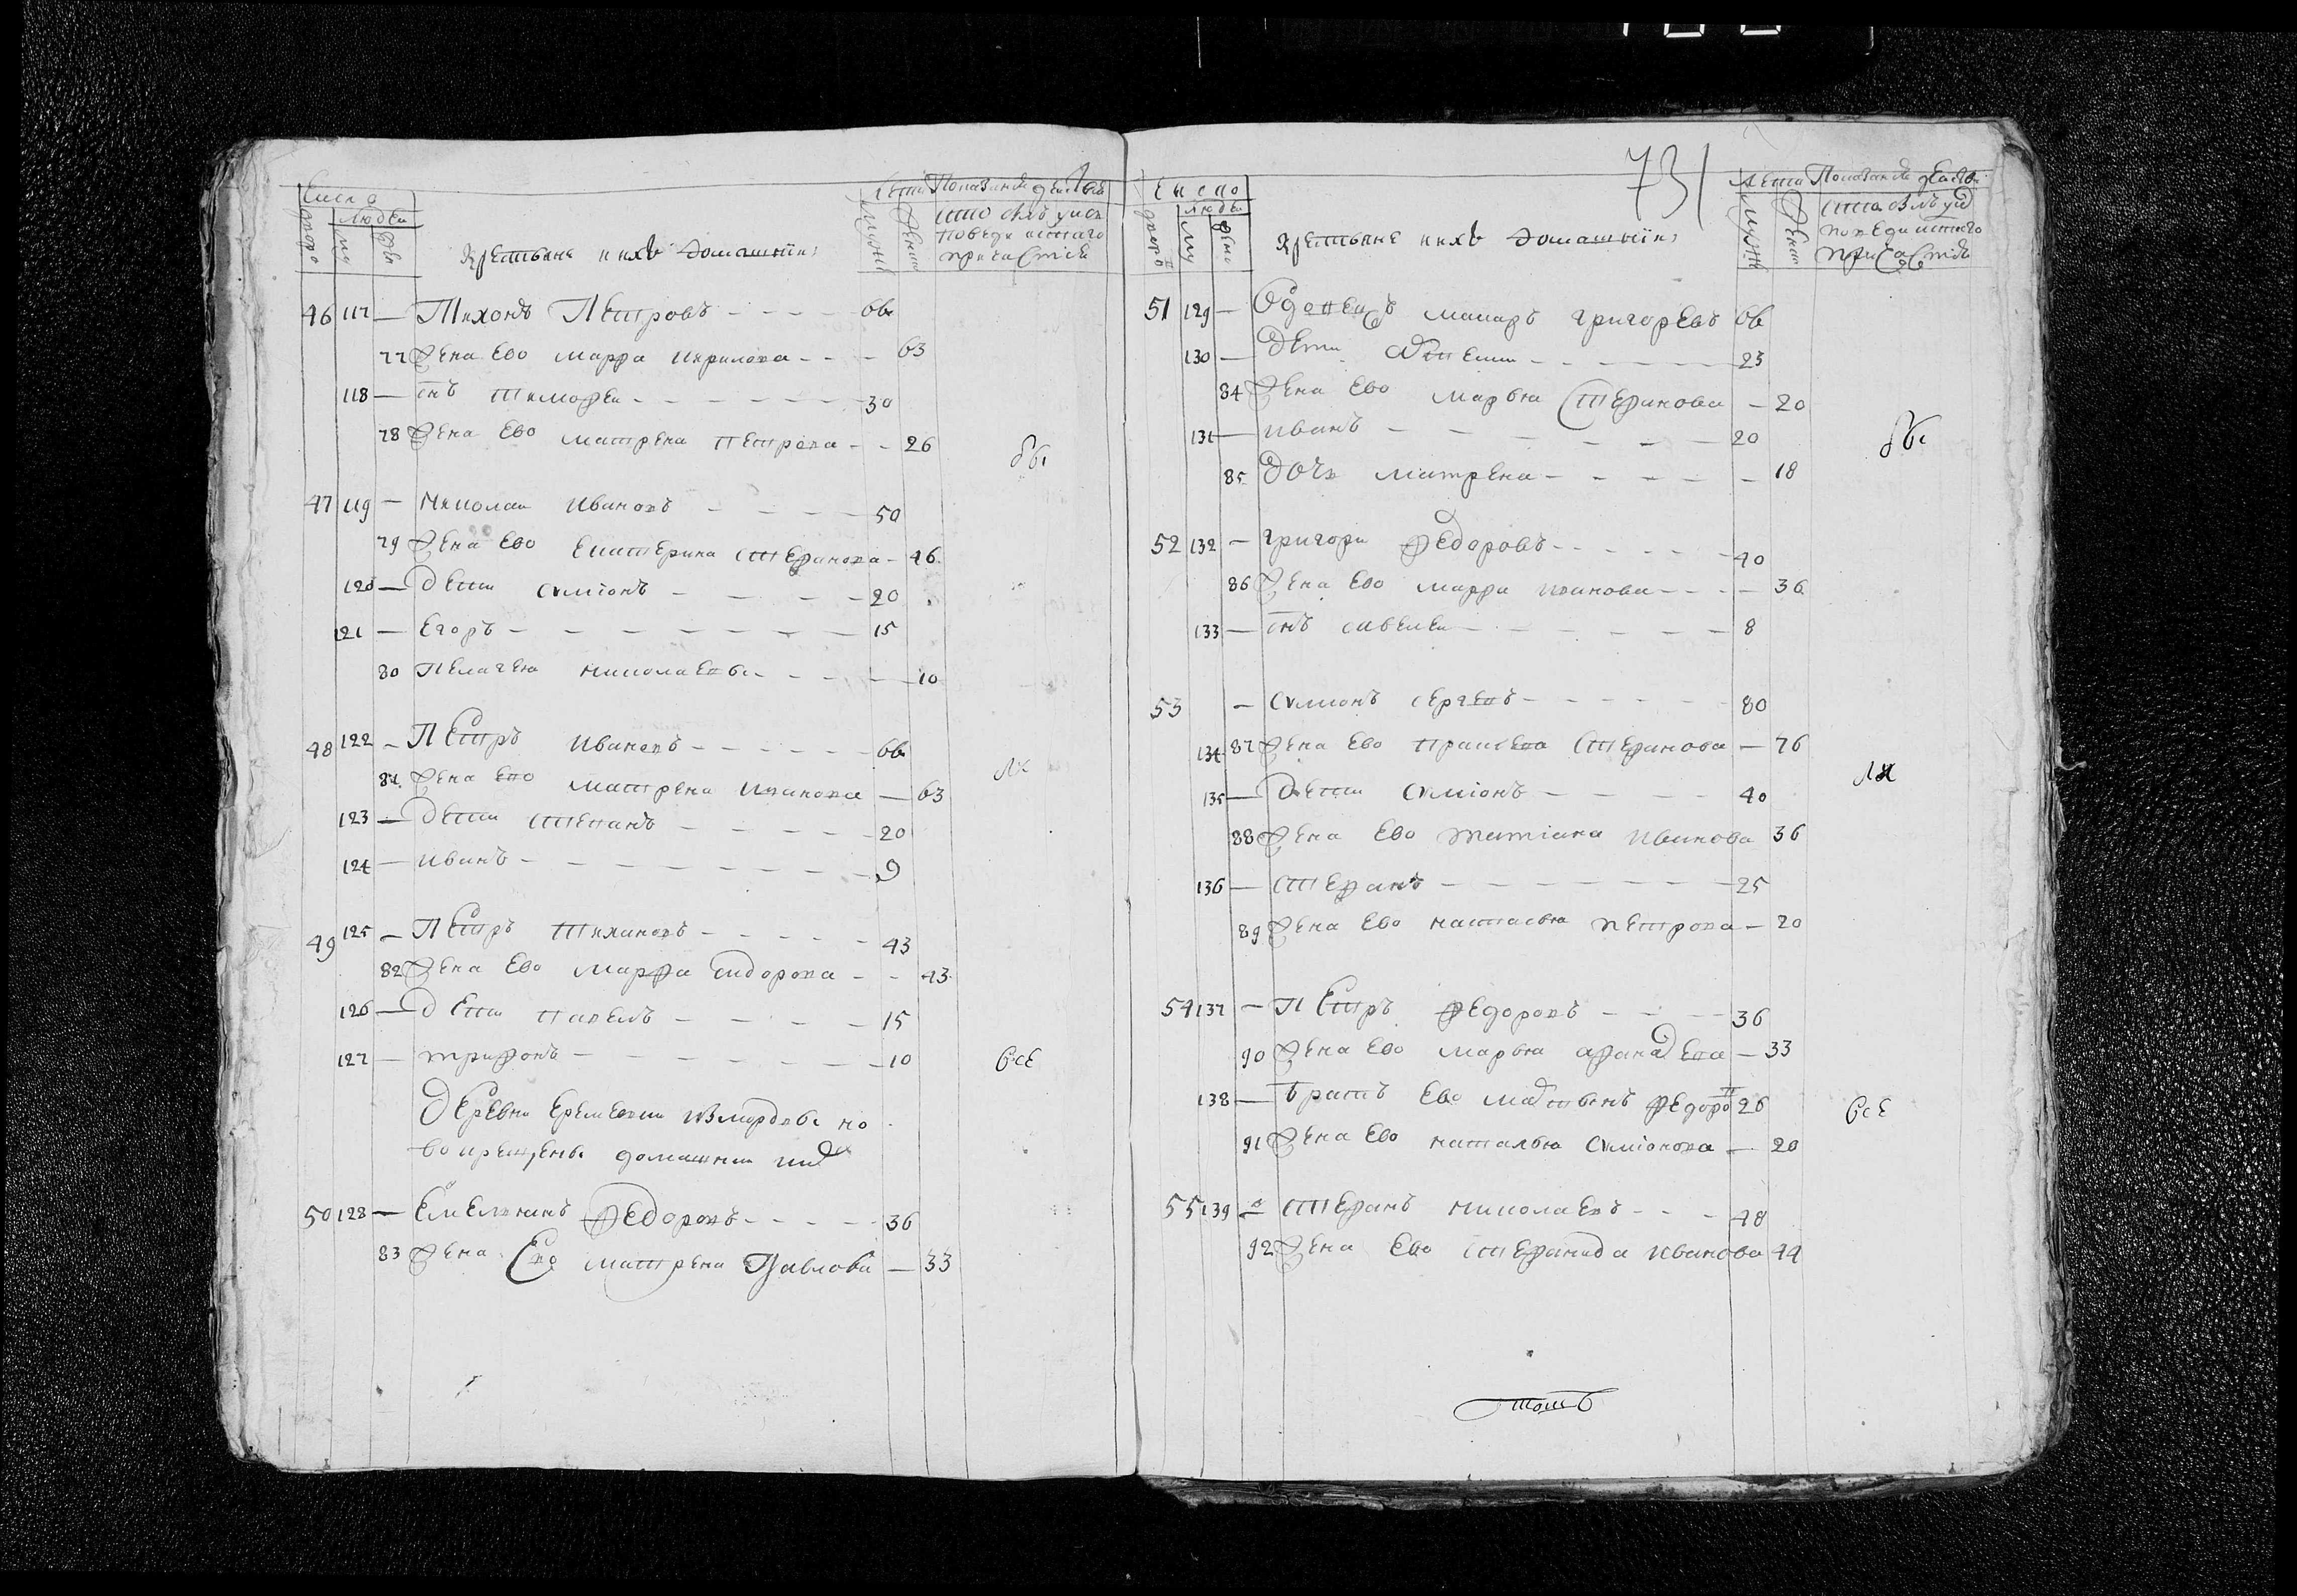 Число
Люди
двор
му
же
Крестьяне и ихъ домашнии
Лета
мужи
жени
Показание действа
кто былъ у исп
поведи и стаго
причастия
46 117 — Тихонъ Петровъ - - - - 66
77 Жена ево марфа кирилова - - - 63
118 — снъ тимофеи - - - - - - - 30
78 Жена ево матрена петрова - - 26
47 119 — николаи ивановъ - - - - 50
79 Жена ево екатерина стефанова - 46
120 — дети симионъ - - - - 20
121 — егоръ - - - - - - - 15
80 пелагея николаевы - - - - 10
48 122 — Петръ ивановъ - - - - - 66
81 Жена ево матрена иванова — 63
123 — дети степанъ - - - - - 20
124 — иванъ - - - - - - - 9
49 125 — Петръ тихановъ - - - - - 43
82 Жена ево марфа сидорова - - 43
126 — дети павелъ - - - - 15
127 — трифонъ - - - - - - - 10
бы
ли
все
деревни еремеевки изъ мордовы но
вокрещены домашнии их
50 128 — емельянъ федоровъ - - - - 36
83 Жена ево матрена павлова — 33
731
Число
Люди
двор
му
жени
Крестьяне и ихъ домашнии
Лета
мужи
жени
Показание действа
кто былъ у ис
поведи и стаго
причастия
51 129 — вдовецъ макаръ григоревъ 66
130 — дети - - - - - - 23
84 Жена ево марья стефанова — 20
131 — иванъ - - - - - - - 20
85 дочь матрена - - - - - 18
52 132 — григори федоровъ - - - - - 40
86 Жена ево марфа иванова - - - - 36
133 — снъ савелеи - - - - - - 8
53 — симионъ сергеевъ - - - - - 80
134 87 Жена ево прасковя стефанова — 76
135 — дети симионъ - - - - 40
88 Жена ево татиана иванова 36
136 — стефанъ - - - - - - - 25
89 Жена ево настасья петрова — 20
54 137 — Петръ федоровъ - - - - 36
90 Жена ево марья афанасева — 33
138 — братъ ево матвеи федоров 26
91 Жена ево наталья симионова — 20
55 139 — стефанъ николаевъ - - - 48
92 Жена ево стефанида иванова 44
бы
ли
все